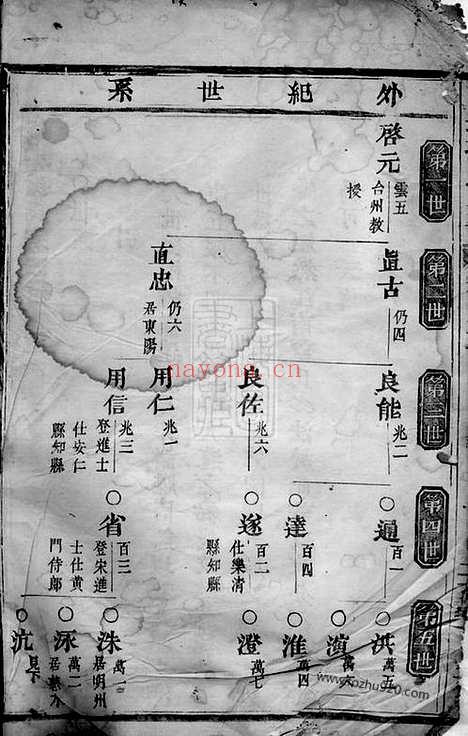 外紀世系
第一世
啓元
雲五
台州教
授
第二世
眞古
仍四
直忠
仍六
居東陽
第三世
良能
兆二
良佐
兆六
用仁
兆一
用信
兆三
登進士
仕安仁
縣知縣
第四世
○通
百一
○達
百四
○遂
百二
仕樂清
縣知縣
○省
百三
登宋進
士仕黄
門侍郎
第五世
○洪
萬五
○演
萬六
○淮
萬四
○澄
萬七
○洙
萬一
居明州
○泳
萬二
居慈水
○沆
見下
nayona.cn